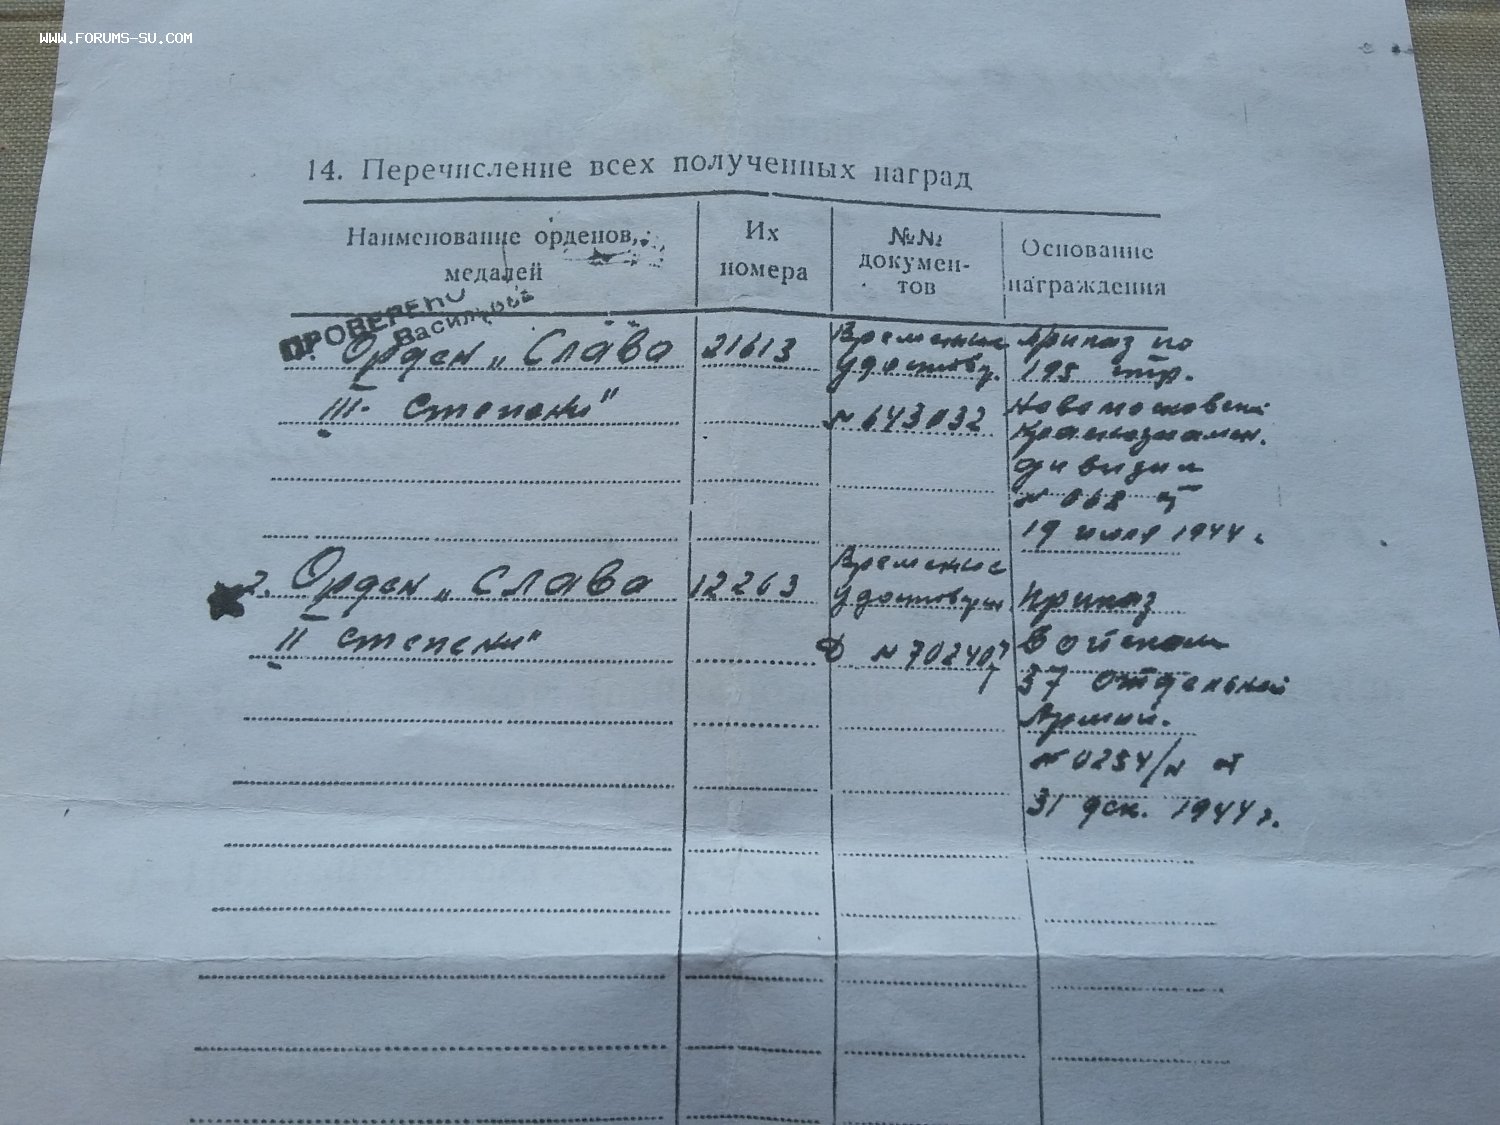 WWW.FORUMS-SU.COM
14. Перечисление всех полученных наград
Наименование орденов,
медалей
Их
номера
№№
докумен-
тов
Основание
награждения
ПРОВЕРЕНО
1. Орден „Слава
21613
Временные
удостов.
Приказ по
195 стр.
III- степени"
№ 643032
Новомосковской
Краснознамен.
дивизии
№ 068 от
19 июля 1944 г.
2. Орден „Слава
12263
Временные
удостовер.
Приказ
II степени"
Д № 702407
Войскам
37 отдельной
Армии.
№ 0254/н от
31 дек. 1944 г.